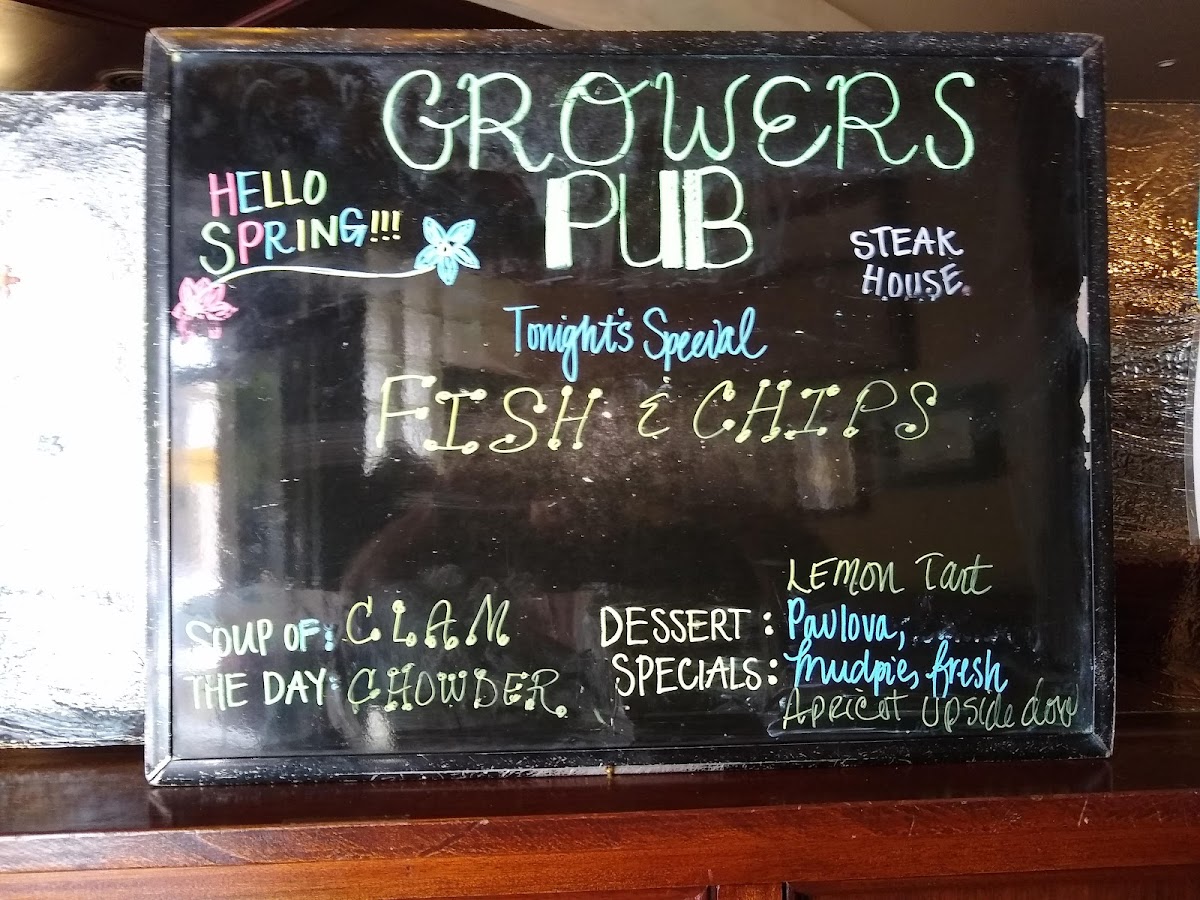 GROWERS
PUB
HELLO
SPRING!!!
STEAK
HOUSE
Tonight's Special
FISH & CHIPS
SOUP OF: CLAM
THE DAY: CHOWDER
LEMON Tart
DESSERT : Pavlova,
SPECIALS: Mudpie, fresh
Apricot Upside dow